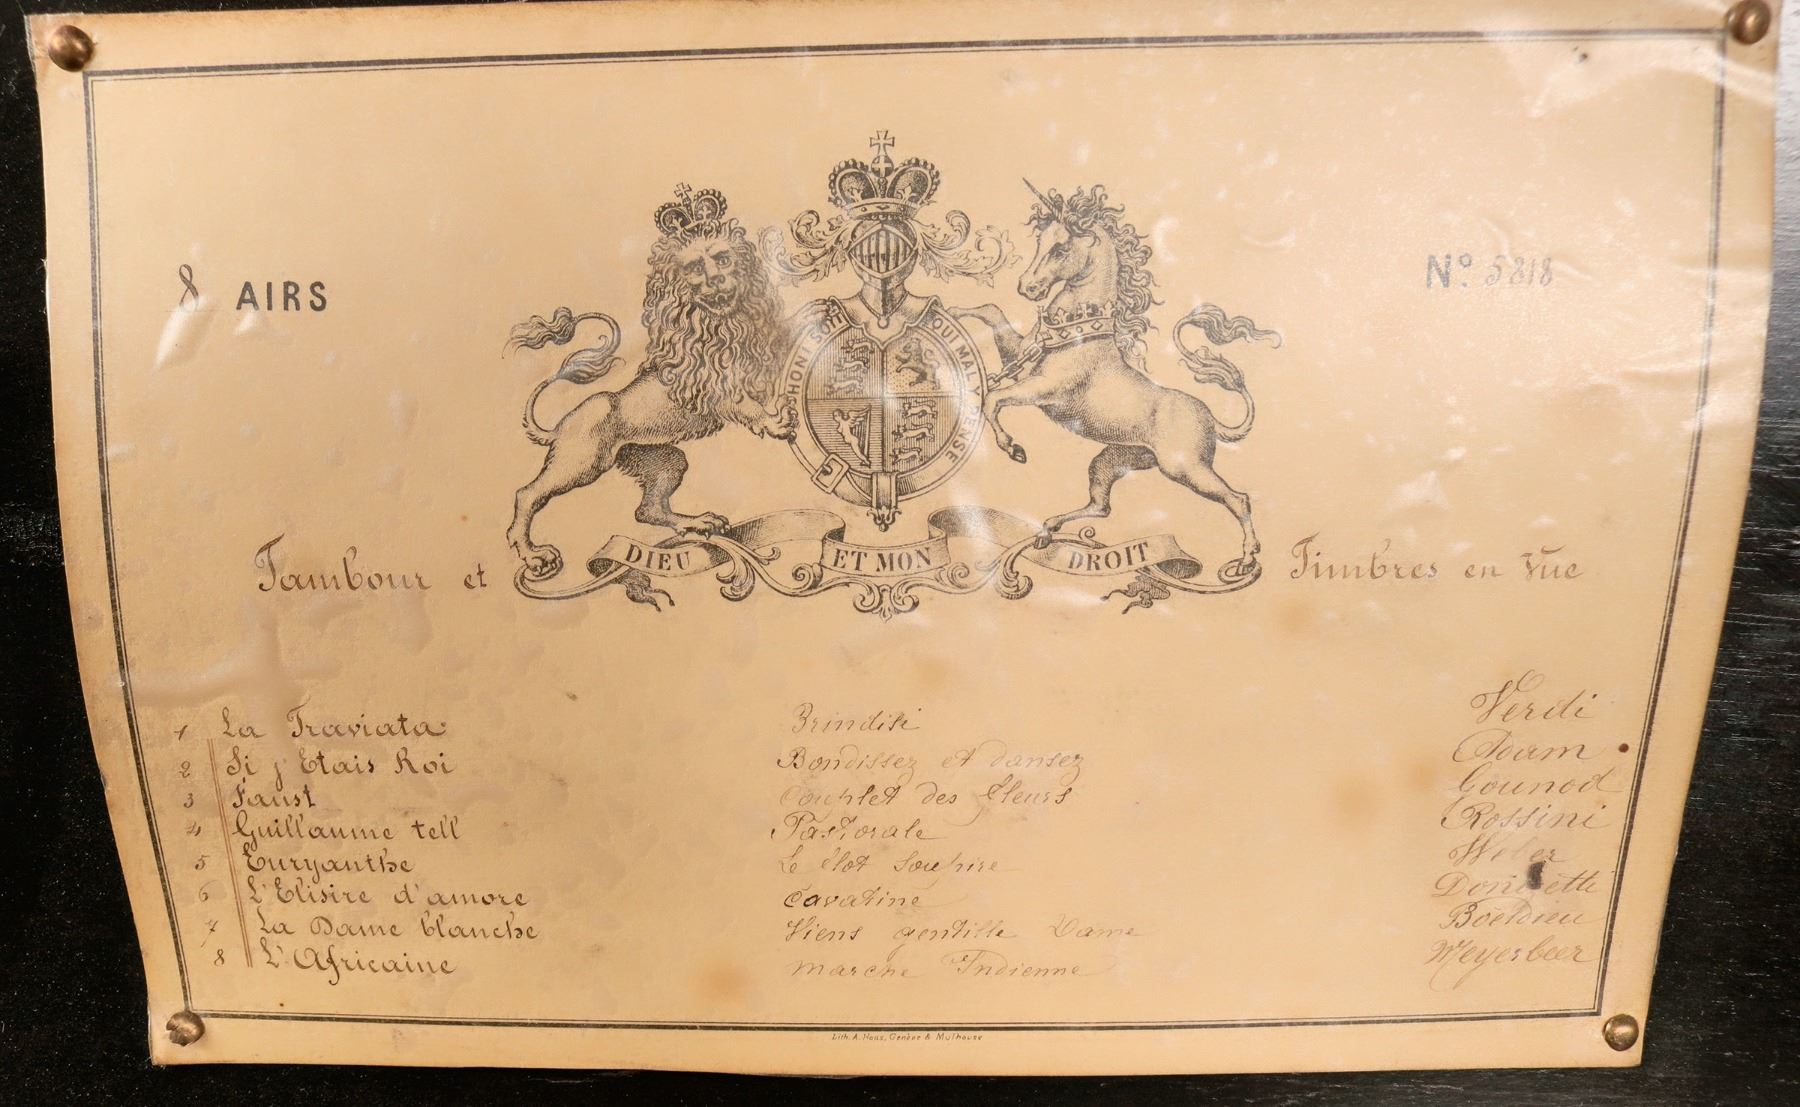 8 AIRS
No. 5818
HONI SOIT QUI MAL Y PENSE
DIEU ET MON DROIT
Tambour et Timbres en Vue
1 La Traviata Brindisi Verdi
2 Si j Etais Roi Bondissez et dansez Adam
3 Faust Couplet des fleurs Gounod
4 Guillaume tell Pastorale Rossini
5 Euryanthe Le flot soupire Weber
6 L'Elisire d'amore Cavatine Donizetti
7 La Dame blanche Viens gentille Dame Boëldieu
8 L'Africaine marche Indienne Meyerbeer
Lith. A. Haas, Genève & Mulhouse